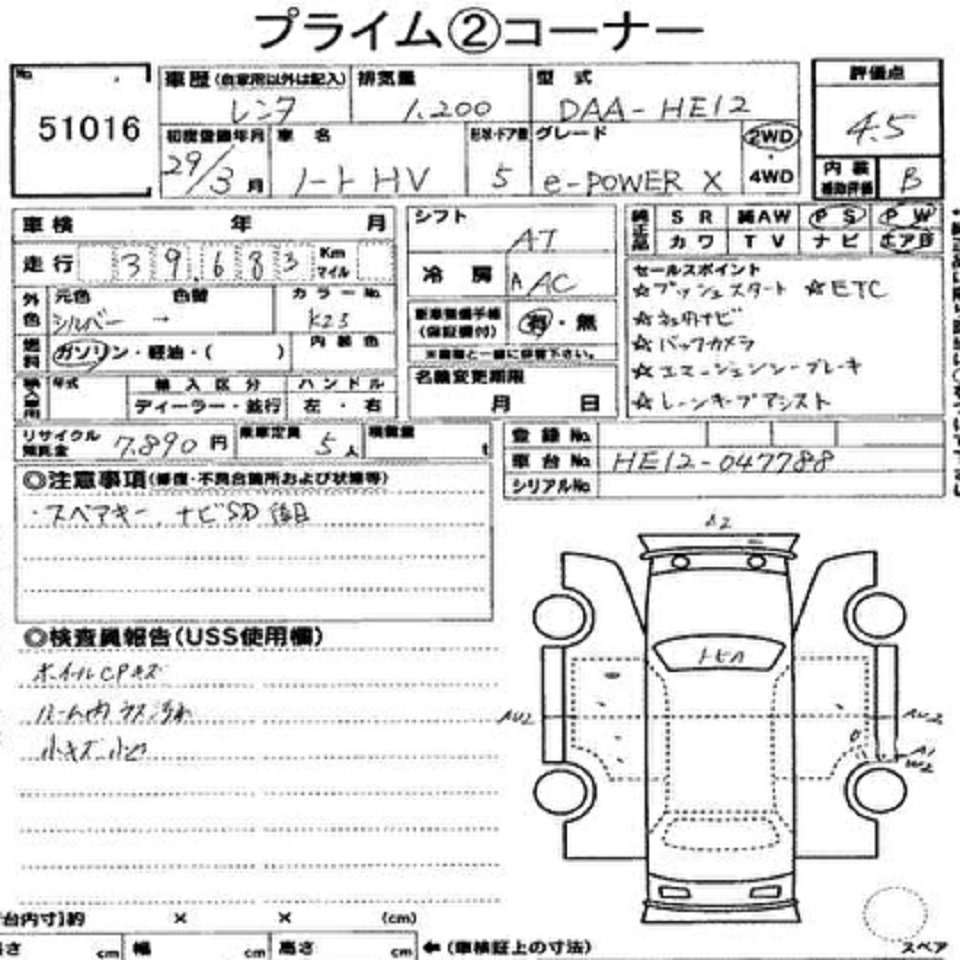 プライム②コーナー
No.
51016
車歴(自家用以外は記入)
レンタ
排気量
1,200
型式
DAA-HE12
評価点
4.5
初度登録年月
29/3月
車名
ノートHV
形状・ドア数
5
グレード
e-POWER X
2WD
・
4WD
内装
補助評価
B
車検 年 月
走行 39,683 Km マイル
外色
元色 色替
シルバー →
カラーNo.
K23
内装色
燃料
ガソリン・軽油・( )
輸入車用
年式
輸入区分
ディーラー・並行
ハンドル
左・右
シフト
AT
冷房
AAC
新車整備手帳
(保証書付)
有・無
※書類と一緒に保管下さい。
名義変更期限
月 日
純正品
SR 純AW PS PW
カワ TV ナビ エアB
セールスポイント
☆プッシュスタート ☆ETC
☆社外ナビ
☆バックカメラ
☆エマージェンシーブレーキ
☆レーンキープアシスト
リサイクル
預託金
7,890円
乗車定員
5人
積載量
t
登録No.
車台No.
HE12-047788
シリアルNo.
◎注意事項(修復・不具合箇所および状態等)
・スペアキー、ナビSD後日
◎検査員報告(USS使用欄)
ホイールCPキズ
ルーム内ラス汚れ
小キズ 小凹
A2
トビA
AU2
AU2
A1
台内寸]約 × × (cm)
高さ cm 幅 cm 高さ cm
←(車検証上の寸法)
スペア